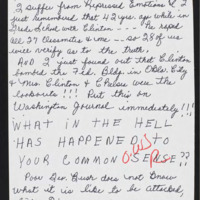 I suffer from Repressed Emotions & I
just remembered that 42 yrs. ago while in
Grade School with Clinton --- he raped
all 27 Classmates & me -- so 28 of us
will verify as to the truth.
And I just found out that Clinton
bombed the Fed. Bldg. in Okla. City
& Mrs. Clinton & C Palsie were the
lookouts!!! Put this on
Washington Journal immediately!!!
WHAT IN THE HELL
HAS HAPPENED TO
YOUR COMMON SENSE??
Poor Gen. Bush does not know
what it is like to be attacked,